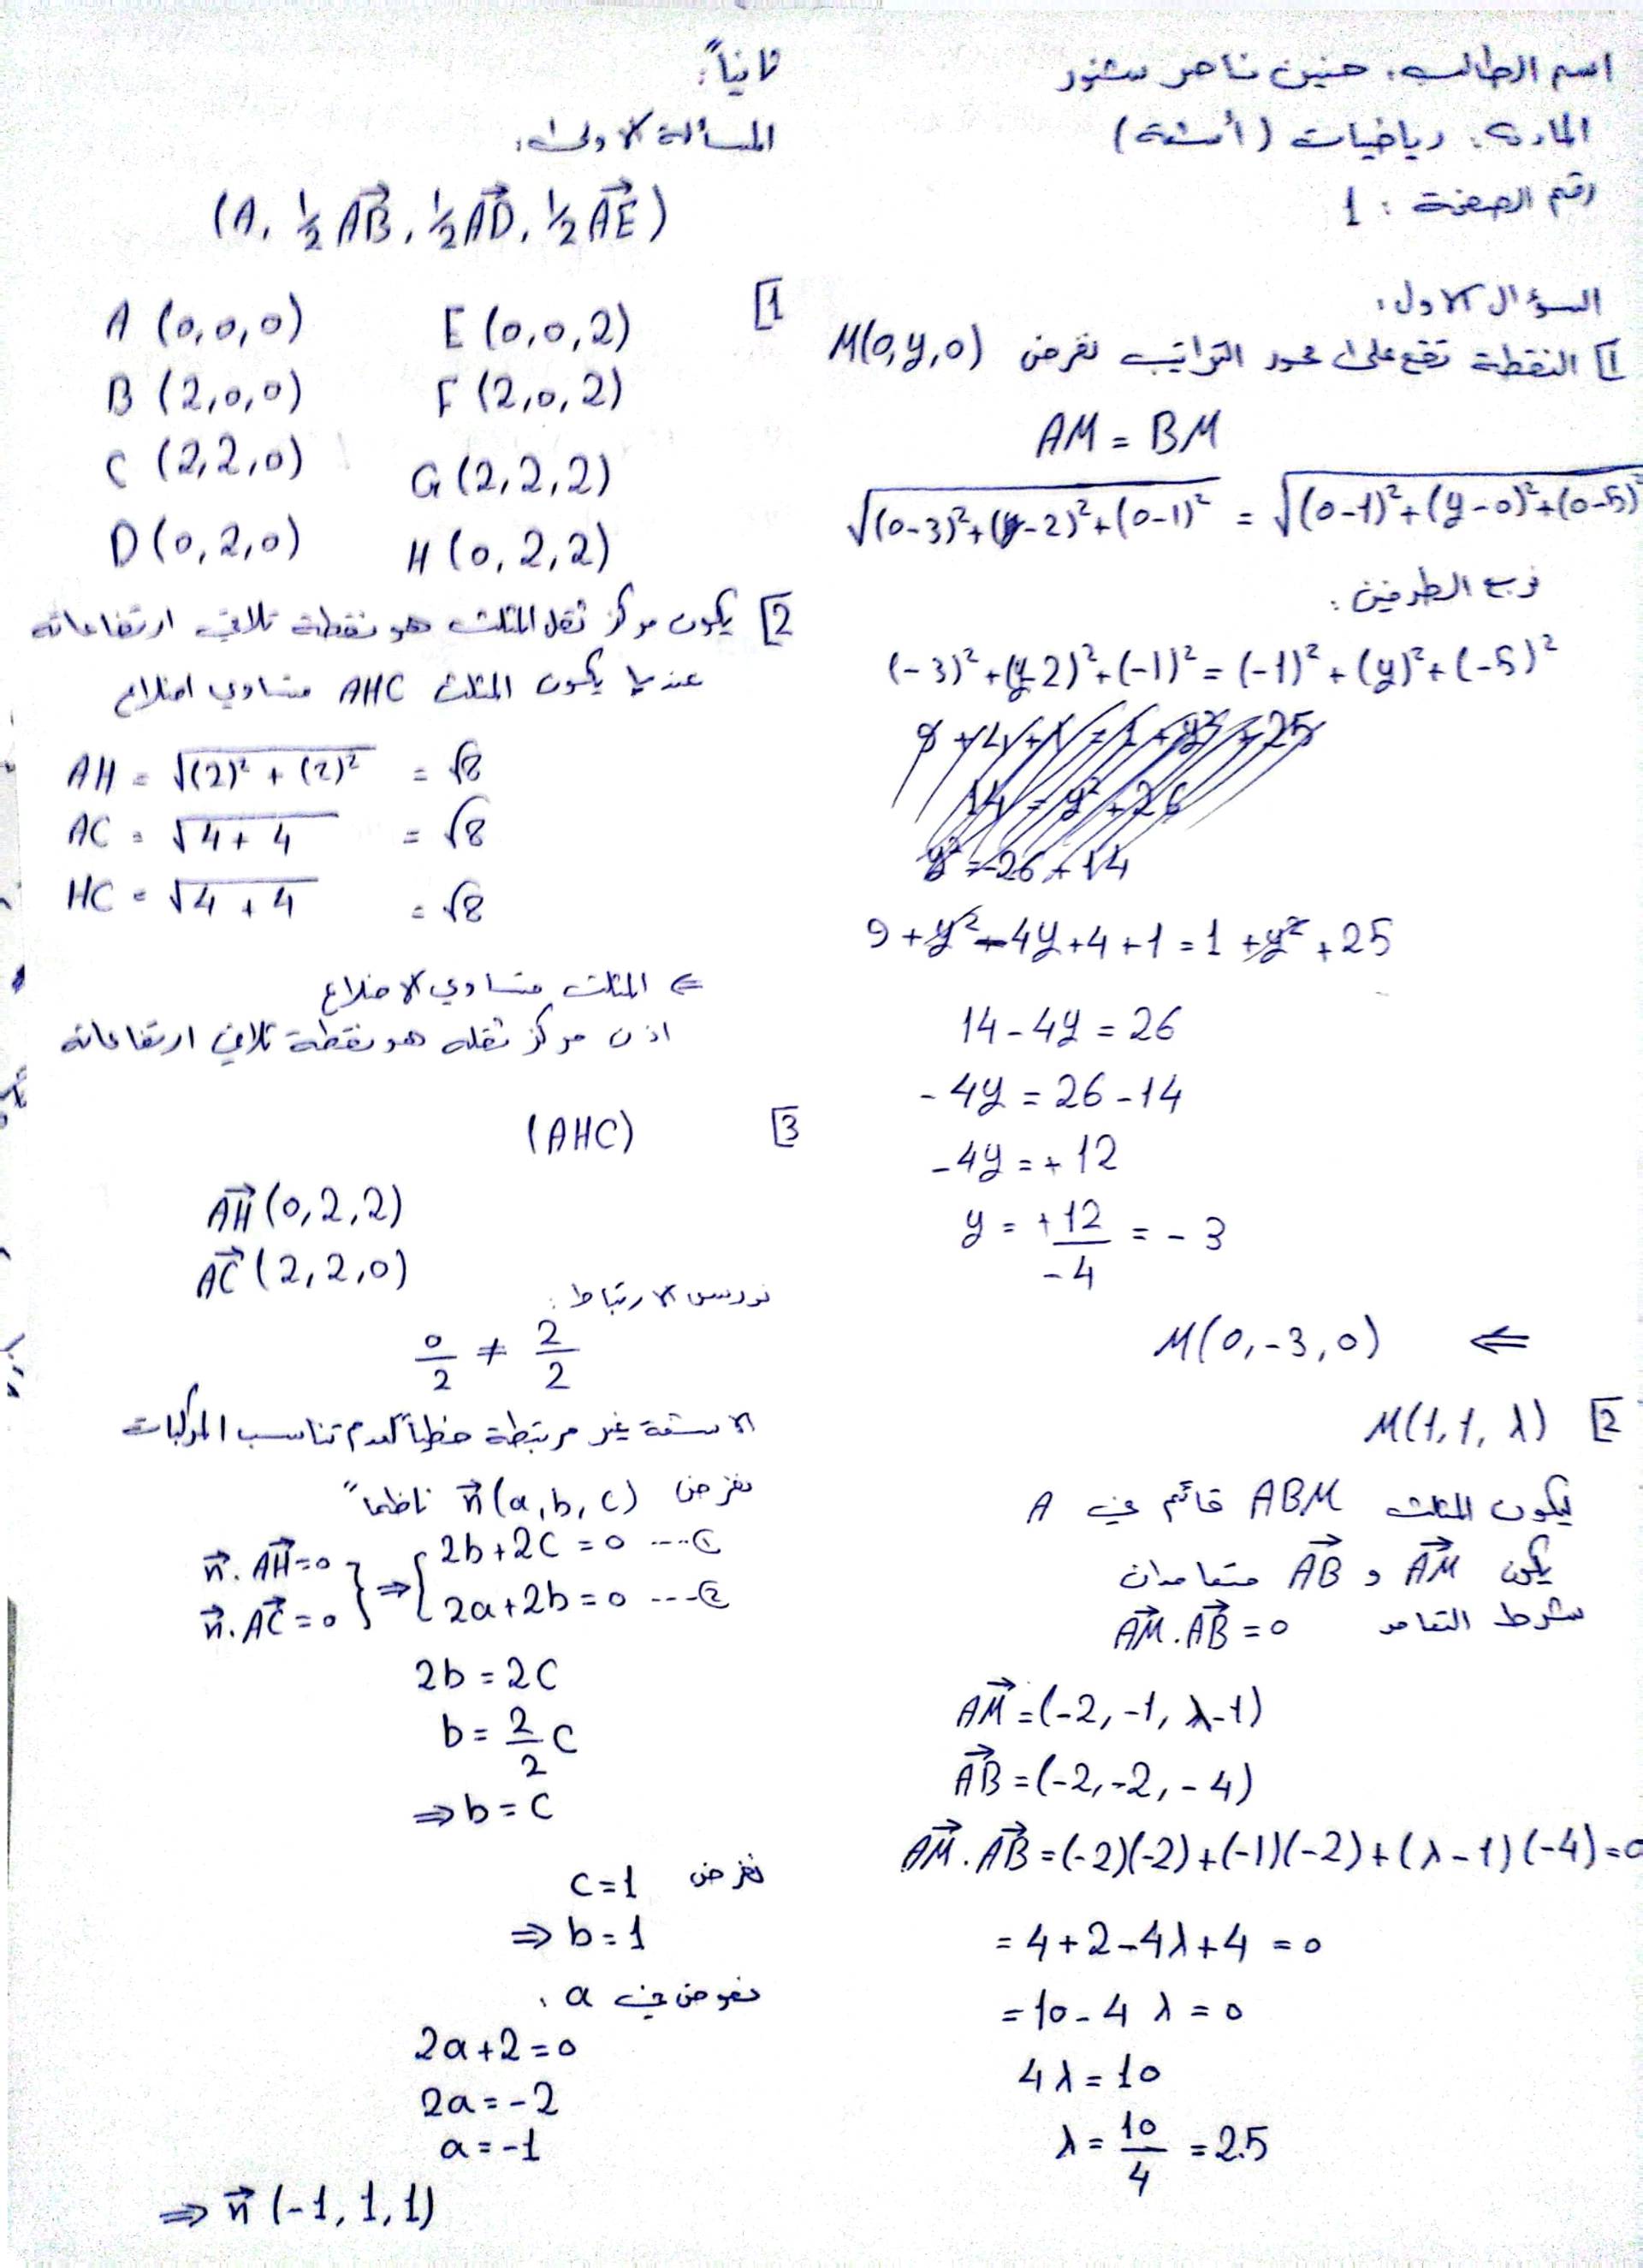 اسم الطالب: حنين ناصر شنور
المادة: رياضيات (أشعة)
رقم الصفحة: 1
السؤال الاول:
1] النقطة تقع على محور التراتيب نفرض M(0,y,0)
AM = BM
√((0-3)²+(y-2)²+(0-1)²) = √((0-1)²+(y-0)²+(0-5)²)
نربع الطرفين:
(-3)²+(y-2)²+(-1)² = (-1)²+(y)²+(-5)²
9+y²-4y+4+1 = 1+y²+25
14-4y = 26
-4y = 26-14
-4y = +12
y = +12/-4 = -3
M(0,-3,0) ⇐
2] M(1,1,λ)
ليكون المثلث ABM قائم في A
يكون AM⃗ و AB⃗ متعامدان
شرط التعامد AM⃗.AB⃗=0
AM⃗=(-2,-1,λ-1)
AB⃗=(-2,-2,-4)
AM⃗.AB⃗=(-2)(-2)+(-1)(-2)+(λ-1)(-4)=0
=4+2-4λ+4=0
=10-4λ=0
4λ=10
λ=10/4=2.5
ثانياً:
المسألة الاولى:
(A, ½AB⃗, ½AD⃗, ½AE⃗)
1]
A (0,0,0) E (0,0,2)
B (2,0,0) F (2,0,2)
C (2,2,0) G (2,2,2)
D (0,2,0) H (0,2,2)
2] يكون مركز ثقل المثلث هو نقطة تلاقي ارتفاعاته
عندما يكون المثلث AHC متساوي اضلاع
AH = √((2)²+(2)²) = √8
AC = √(4+4) = √8
HC = √(4+4) = √8
⇐ المثلث متساوي الاضلاع
اذن مركز ثقله هو نقطة تلاقي ارتفاعاته
3] (AHC)
AH⃗ (0,2,2)
AC⃗ (2,2,0)
ندرس الارتباط:
0/2 ≠ 2/2
الاشعة غير مرتبطة خطياً لعدم تناسب المركبات
نفرض n⃗(a,b,c) ناظماً
n⃗.AH⃗=0 } ⇒ { 2b+2c=0 ---①
n⃗.AC⃗=0 } ⇒ { 2a+2b=0 ---②
2b=2c
b=2/2 c
⇒b=c
نفرض c=1
⇒b=1
نعوض في a:
2a+2=0
2a=-2
a=-1
⇒n⃗(-1,1,1)